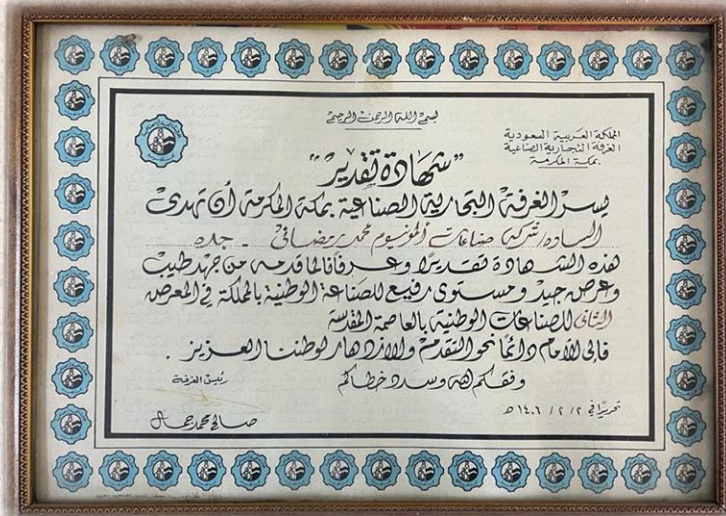 بسم الله الرحمن الرحيم
المملكة العربية السعودية
الغرفة التجارية الصناعية
بمكة المكرمة
"شهادة تقدير"
يسر الغرفة التجارية الصناعية بمكة المكرمة أن تهدى
السادة/ شركة صناعات ألمونيوم محمد رمضانى - جده
هذه الشهادة تقديرًا وعرفانًا لما قدمه من جهد طيب
وعرض جيد ومستوى رفيع للصناعة الوطنية بالمملكة في المعرض
الثانى للصناعات الوطنية بالعاصمة المقدسة
فإلى الأمام دائمًا نحو التقدم والازدهار لوطننا العزيز .
وفقكم الله وسدد خطاكم
رئيس الغرفة
تحريرًا في ٢ / ٢ / ١٤٠٦ هـ
صالح محمد جمال